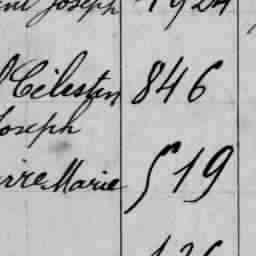 Joseph 1924
Célestin 846
Joseph
Marie 519